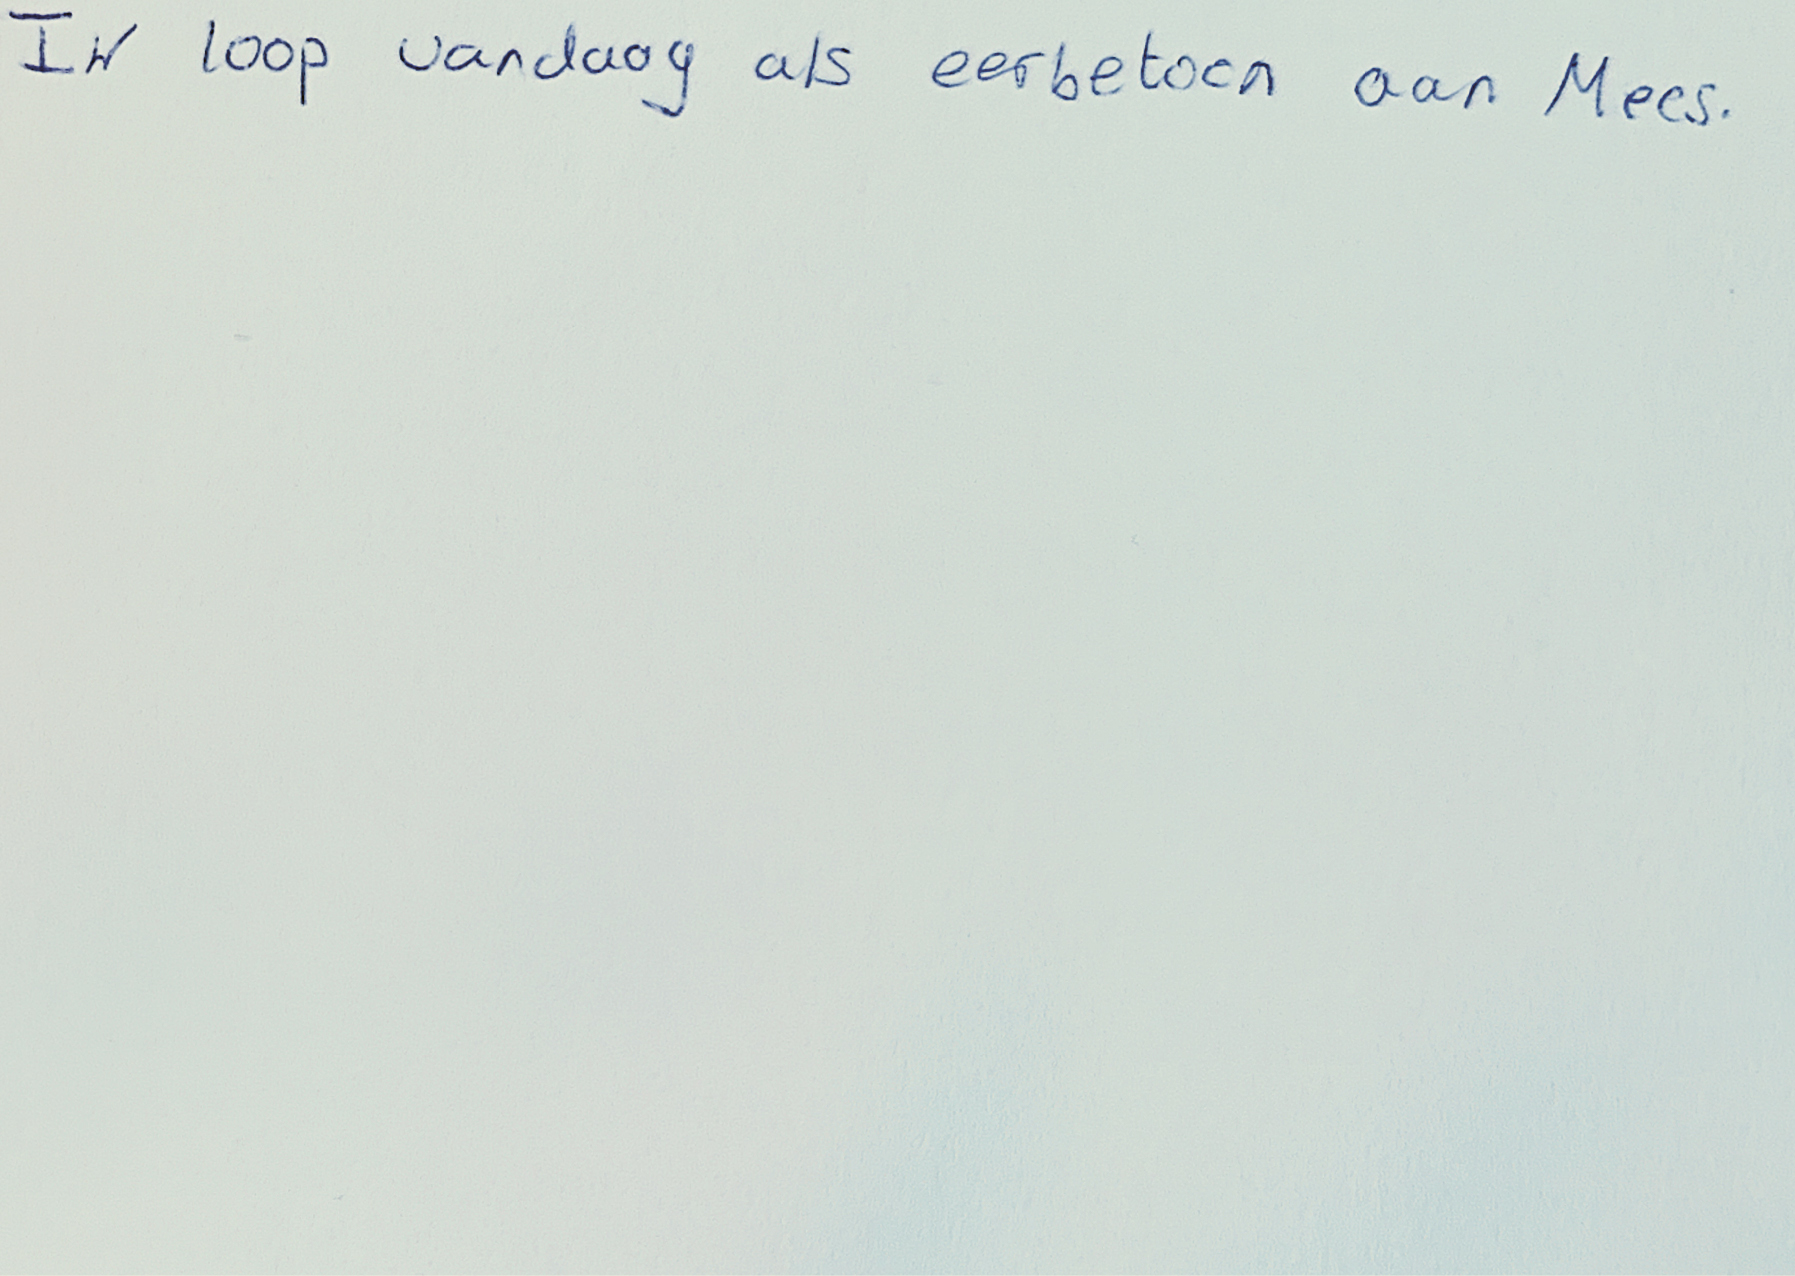 Ik loop vandaag als eerbetoon aan Mees.